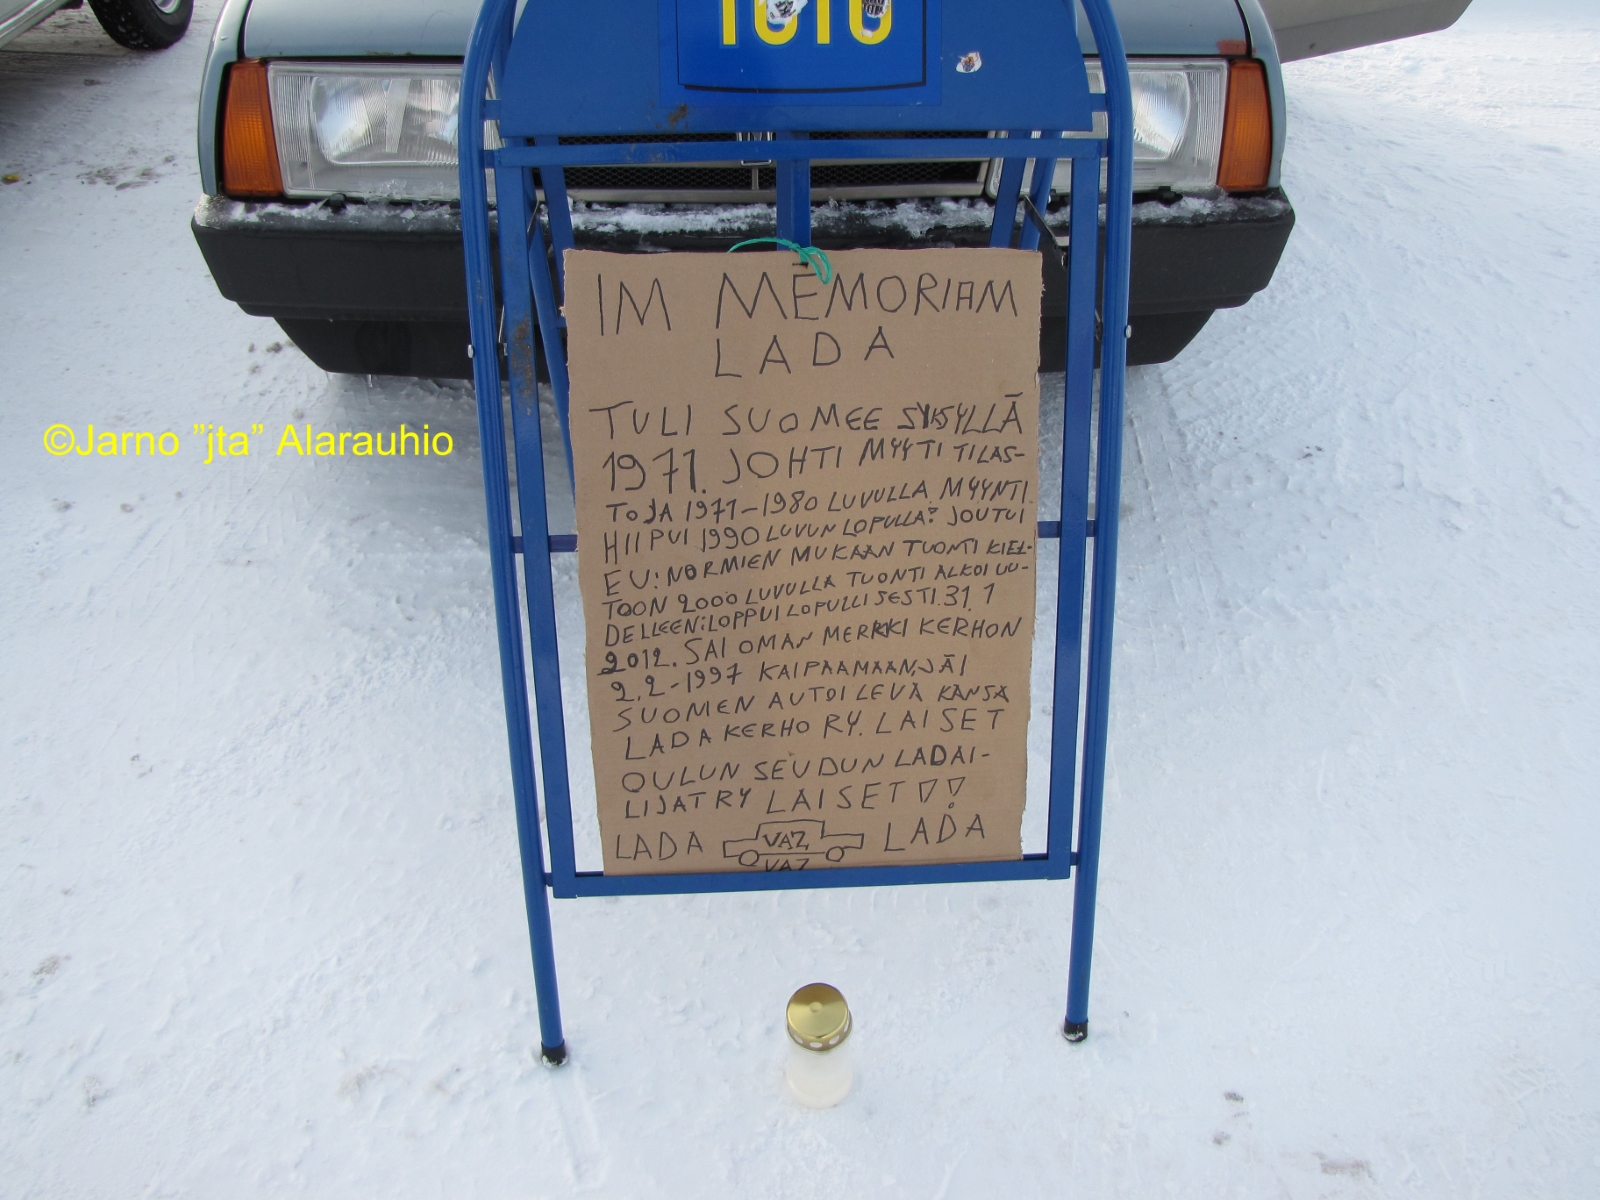 TOTO
IM MEMORIAM
LADA
TULI SUOMEE SYKSYLLÄ
1971. JOHTI MYYTI TILAS-
TOJA 1971-1980 LUVULLA. MYYNTI
HIIPUI 1990 LUVUN LOPULLA? JOUTUI
EU:NORMIEN MUKAAN TUONTI KIEL-
TOON 2000 LUVULLA TUONTI ALKOI UU-
DELLEEN:LOPPUI LOPULLISESTI.31.1
2012. SAI OMAN MERKKI KERHON
2.2-1997 KAIPAAMAAN,JÄI
SUOMEN AUTOILEVA KANSA
LADA KERHO RY. LAISET
OULUN SEUDUN LADAI-
LIJAT RY LAISET !!
LADA VAZ LADA
VAZ
©Jarno "jta" Alarauhio